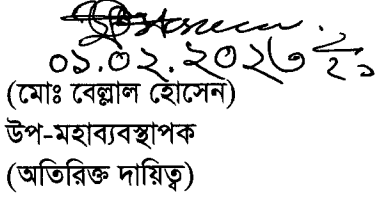 ০১.০২.২০২৩
(মোঃ বেল্লাল হোসেন)
উপ-মহাব্যবস্থাপক
(অতিরিক্ত দায়িত্ব)